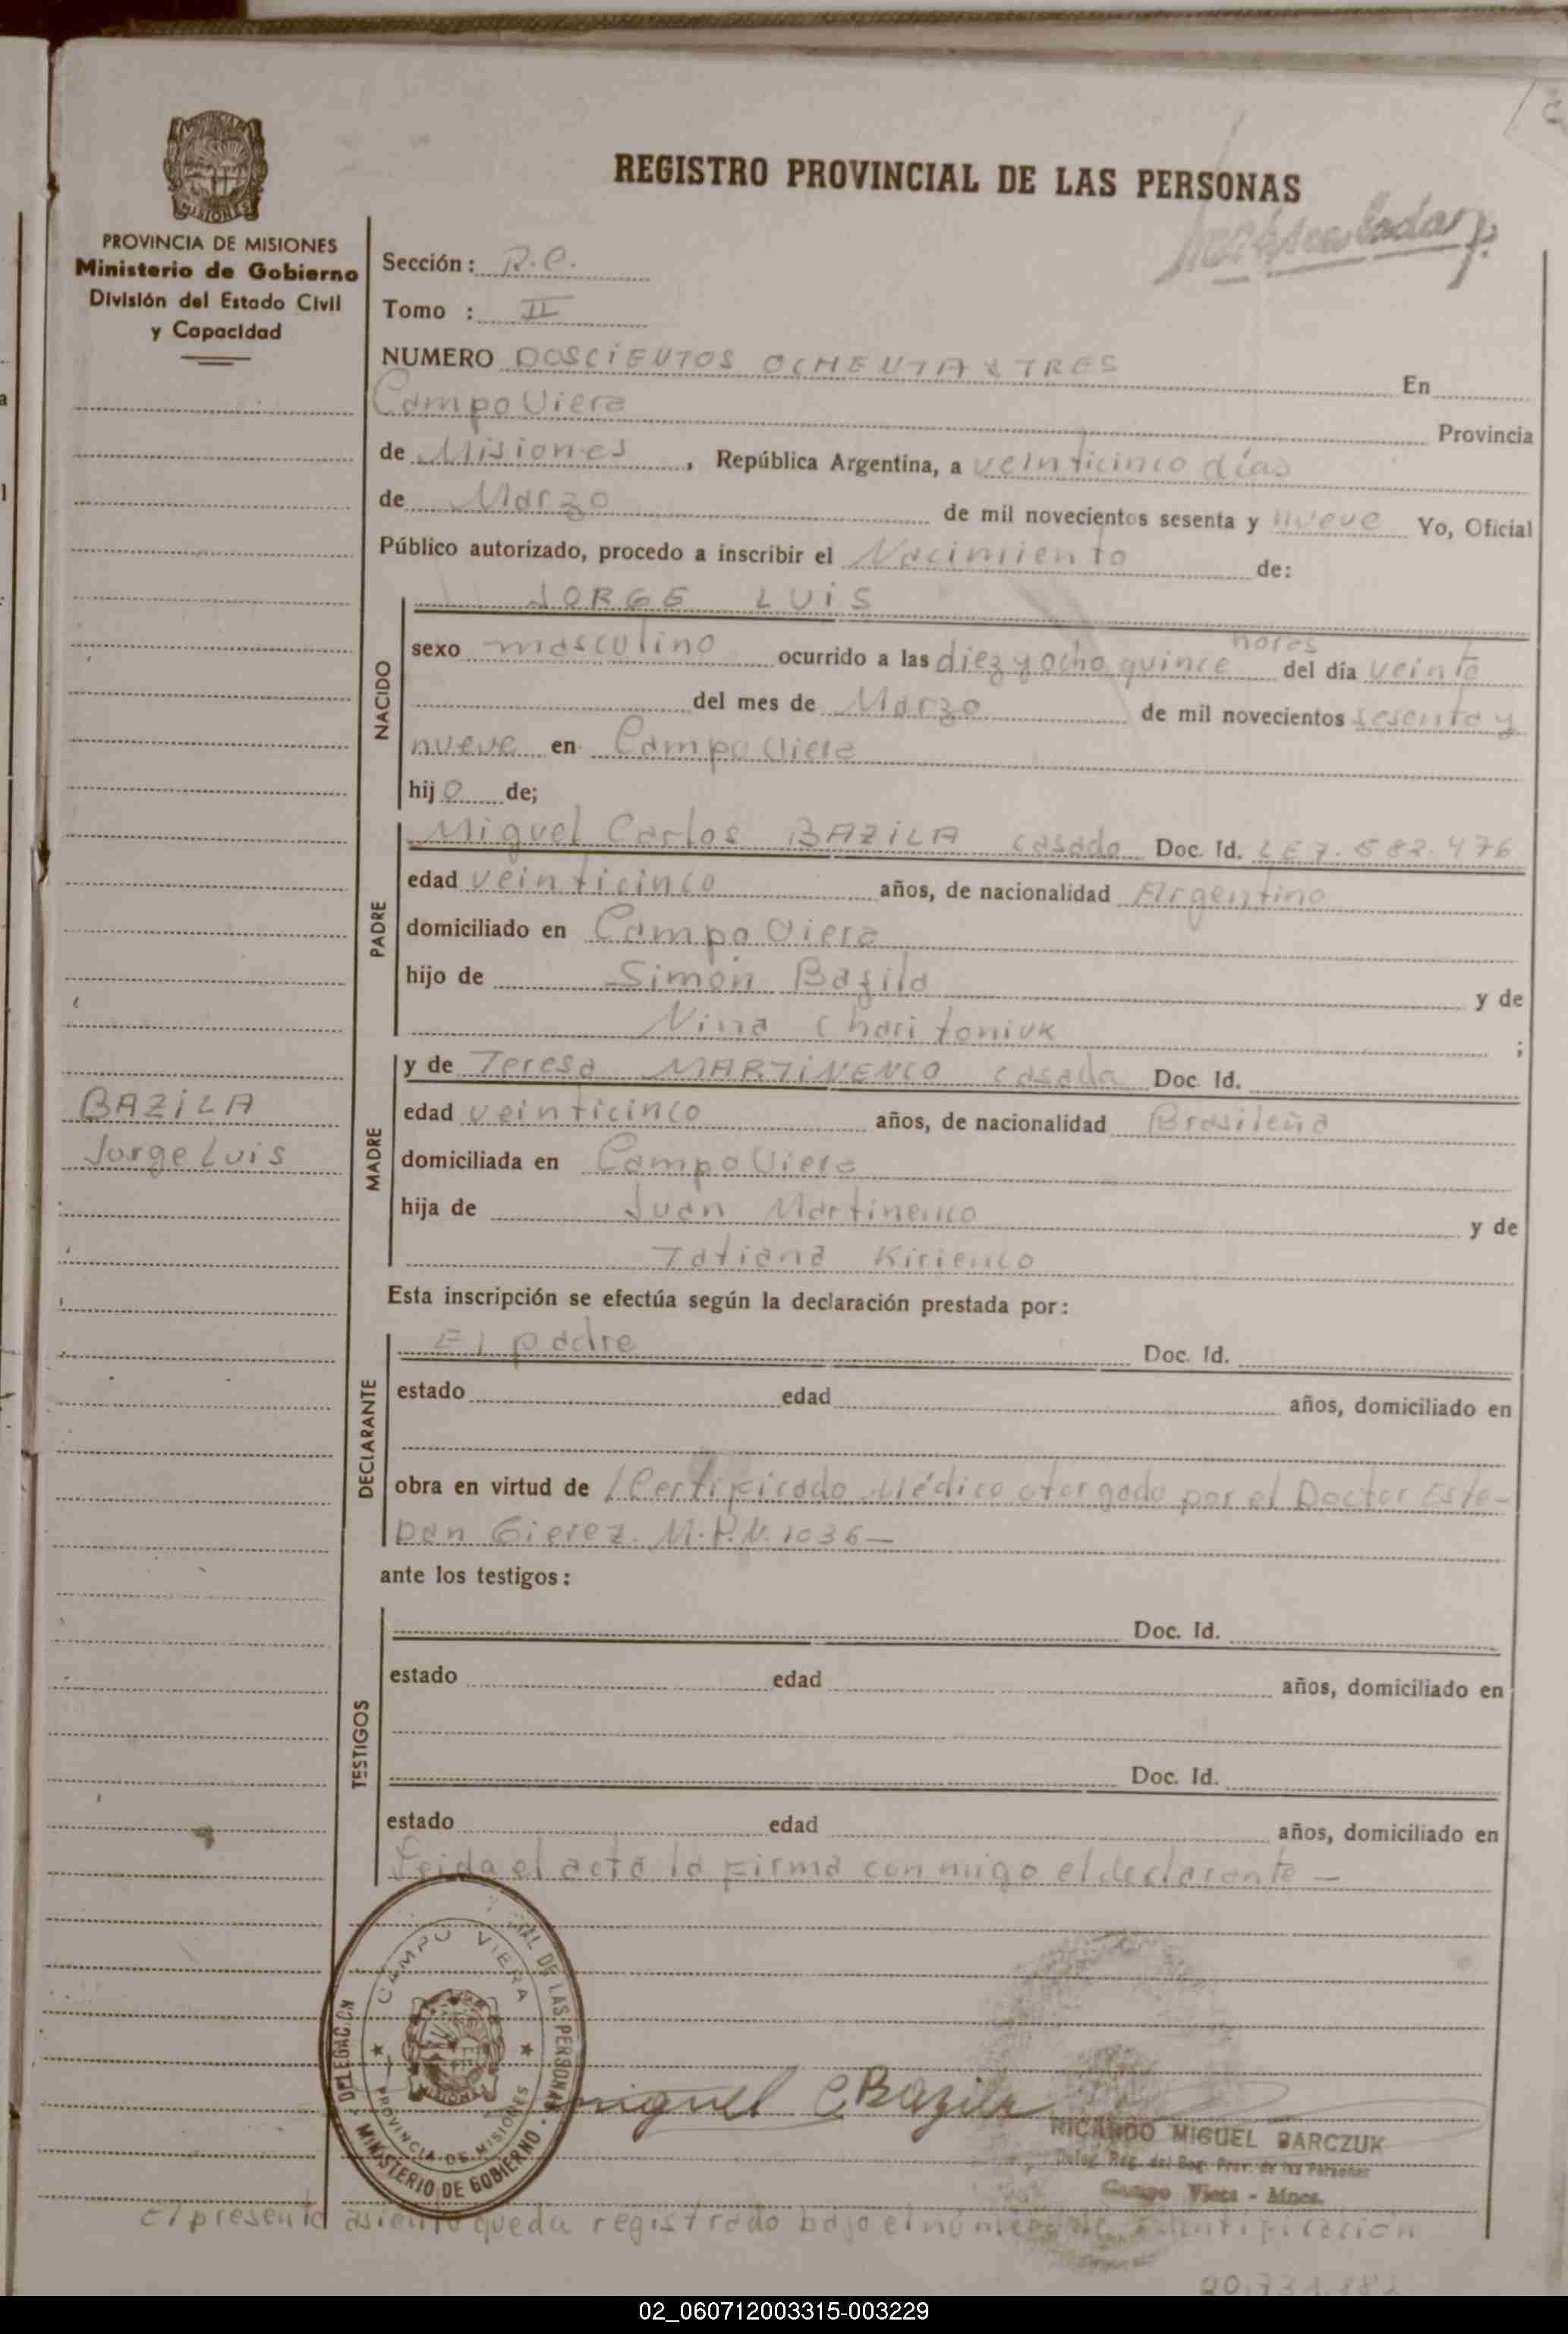 REGISTRO PROVINCIAL DE LAS PERSONAS
MISIONES
PROVINCIA DE MISIONES
Ministerio de Gobierno
División del Estado Civil
y Capacidad
Sección: R.C.
Tomo : II
NUMERO DOSCIENTOS OCHENTA Y TRES En
Campo Viera Provincia
de Misiones, República Argentina, a veinticinco días
de Marzo de mil novecientos sesenta y nueve Yo, Oficial
Público autorizado, procedo a inscribir el Nacimiento de:
NACIDO
JORGE LUIS
horas
sexo masculino ocurrido a las diez y ocho quince del día veinte
del mes de Marzo de mil novecientos sesenta y
nueve en Campo Viera
hijo de;
PADRE
Miguel Carlos BAZILA casado Doc. Id. LE 7.582.476
edad veinticinco años, de nacionalidad Argentino
domiciliado en Campo Viera
hijo de Simón Bazila y de
Nina Charitoniuk ;
MADRE
y de Teresa MARTINENCO casada Doc. Id.
edad veinticinco años, de nacionalidad Brasileña
domiciliada en Campo Viera
hija de Juan Martinenco y de
Tatiana Kirienco
BAZILA
Jorge Luis
Esta inscripción se efectúa según la declaración prestada por:
DECLARANTE
El padre Doc. Id.
estado edad años, domiciliado en
obra en virtud de Certificado Médico otorgado por el Doctor Este-
ban Gierez. M.P.N. 1036—
ante los testigos:
TESTIGOS
Doc. Id.
estado edad años, domiciliado en
Doc. Id.
estado edad años, domiciliado en
Leida el acta la firma con migo el declarante —
DELEGACION
IAL DE LAS PERSONAS
CAMPO VIERA
PROVINCIA DE MISIONES
MINISTERIO DE GOBIERNO
Miguel C Bazila
RICARDO MIGUEL BARCZUK
Deleg. Reg. del Reg. Prov. de las Personas
Campo Viera - Mnes.
El presente asiento queda registrado bajo el número de identificación
02_060712003315-003229